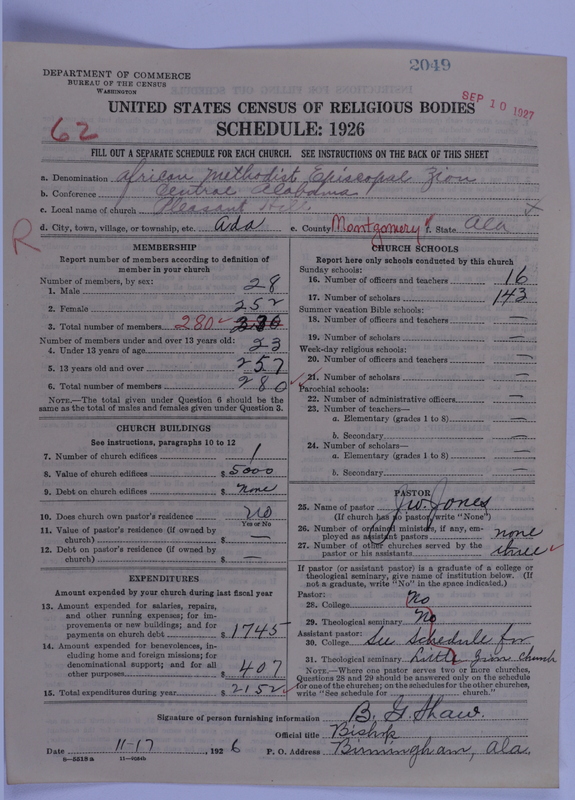 2049
DEPARTMENT OF COMMERCE
BUREAU OF THE CENSUS
WASHINGTON
SEP 10 1927
UNITED STATES CENSUS OF RELIGIOUS BODIES
62
SCHEDULE: 1926
FILL OUT A SEPARATE SCHEDULE FOR EACH CHURCH. SEE INSTRUCTIONS ON THE BACK OF THIS SHEET
a. Denomination African Methodist Episcopal Zion
b. Conference Central Alabama
c. Local name of church Pleasant Hill X
d. City, town, village, or township, etc. Ada e. County Montgomery f. State Ala
R
MEMBERSHIP
Report number of members according to definition of
member in your church
Number of members, by sex:
1. Male 28
2. Female 252
3. Total number of members 280 ✓ 330
Number of members under and over 13 years old:
4. Under 13 years of age 23
5. 13 years old and over 257
6. Total number of members 280 ✓
NOTE.—The total given under Question 6 should be the
same as the total of males and females given under Question 3.
CHURCH BUILDINGS
See instructions, paragraphs 10 to 12
7. Number of church edifices 1
8. Value of church edifices $ 5000
9. Debt on church edifices $ none
10. Does church own pastor's residence No
Yes or No
11. Value of pastor's residence (if owned by
church) $ —
12. Debt on pastor's residence (if owned by
church) $ —
EXPENDITURES
Amount expended by your church during last fiscal year
13. Amount expended for salaries, repairs,
and other running expenses; for im-
provements or new buildings; and for
payments on church debt $ 1745
14. Amount expended for benevolences, in-
cluding home and foreign missions; for
denominational support; and for all
other purposes $ 407
15. Total expenditures during year $ 2152 ✓
CHURCH SCHOOLS
Report here only schools conducted by this church
Sunday schools:
16. Number of officers and teachers 16
17. Number of scholars 143
Summer vacation Bible schools:
18. Number of officers and teachers —
19. Number of scholars —
Week-day religious schools:
20. Number of officers and teachers —
21. Number of scholars —
Parochial schools:
22. Number of administrative officers —
23. Number of teachers—
a. Elementary (grades 1 to 8) —
b. Secondary —
24. Number of scholars—
a. Elementary (grades 1 to 8) —
b. Secondary —
PASTOR
25. Name of pastor J. W. Jones
(If church has no pastor, write "None")
26. Number of ordained ministers, if any, em-
ployed as assistant pastors none
27. Number of other churches served by the
pastor or his assistants three ✓
If pastor (or assistant pastor) is a graduate of a college or
theological seminary, give name of institution below. (If
not a graduate, write "No" in the space indicated.)
Pastor:
28. College No
29. Theological seminary No
Assistant pastor:
30. College See Schedule for
31. Theological seminary Little Zion Church
NOTE.—Where one pastor serves two or more churches,
Questions 28 and 29 should be answered only on the schedule
for one of the churches; on the schedules for the other churches,
write "See schedule for church."
Signature of person furnishing information B. G. Shaw.
Official title Bishop
Date 11-17, 1926 P. O. Address Birmingham, Ala.
8—5513a 11—9084b